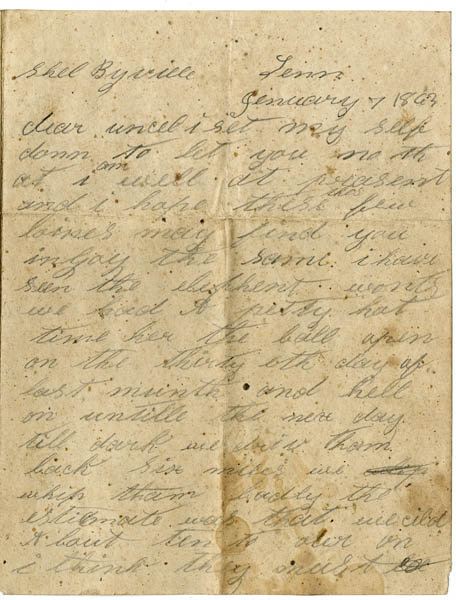 Shel Byville Tenn
Jenuary 7 1863
dear uncel i set my self
down to let you no th
at i am well at preasent
and i hope these few
lines may find you
injoy the same i have
sen the elephent wonts
we had A petty hot
time her the ball open
on the thirty oth day of
last munth and hell
on untille the nex day
till dark we driv tham
back six miles we
whip tham badly the
estimate was that we cild
A bout ten to our on
i think they must